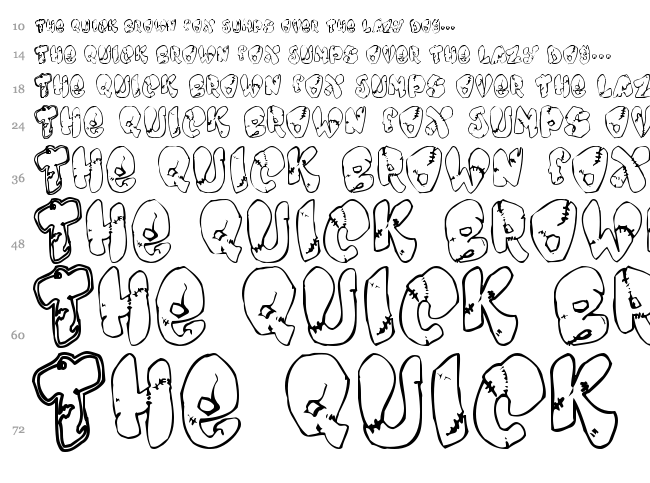 10 The Quick Brown fox Jumps Over The Lazy Dog...
14 The Quick Brown fox Jumps Over The Lazy Dog...
18 The Quick Brown fox Jumps Over The Laz
24 The Quick Brown fox Jumps Ov
36 The Quick Brown fox
48 The Quick Brow
60 The Quick Br
72 The Quick